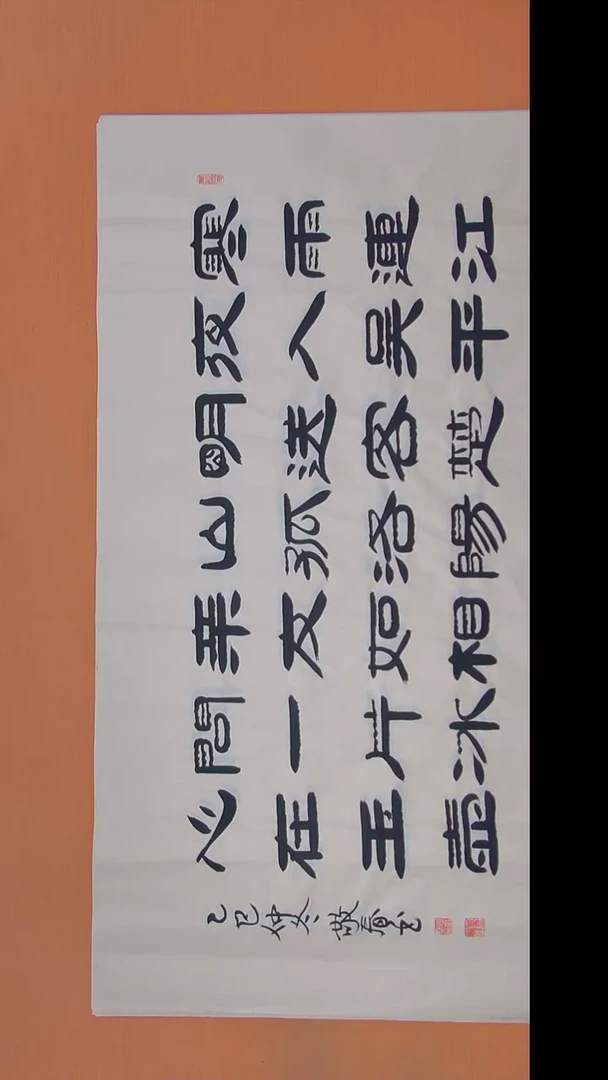 寒雨連江
夜入吴平
明送客楚
山孤洛陽
亲友如相
問一片冰
心在玉壺
乙巳仲冬